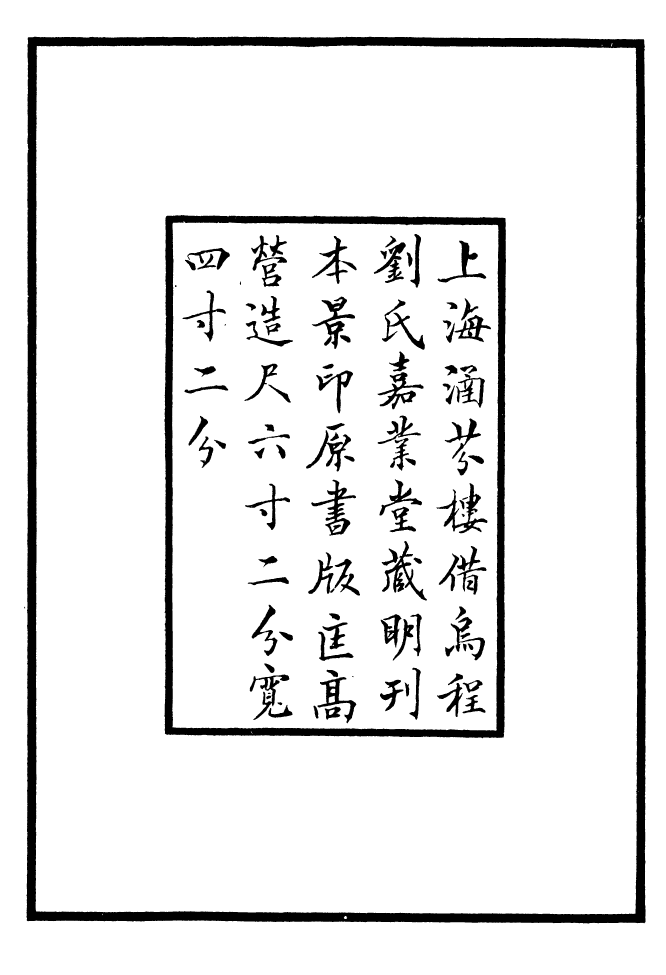 上海涵芬樓借烏程
劉氏嘉業堂藏明刊
本景印原書版匡高
營造尺六寸二分寬
四寸二分